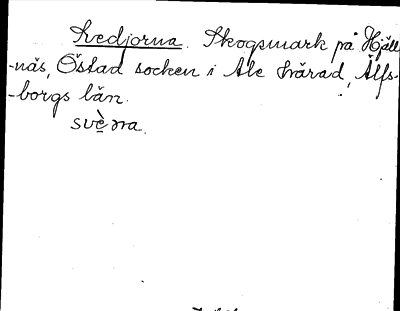 Svedjorna. Skogsmark på Hjäll
-näs, Östad socken i Ale härad, Älfs-
-borgs län.